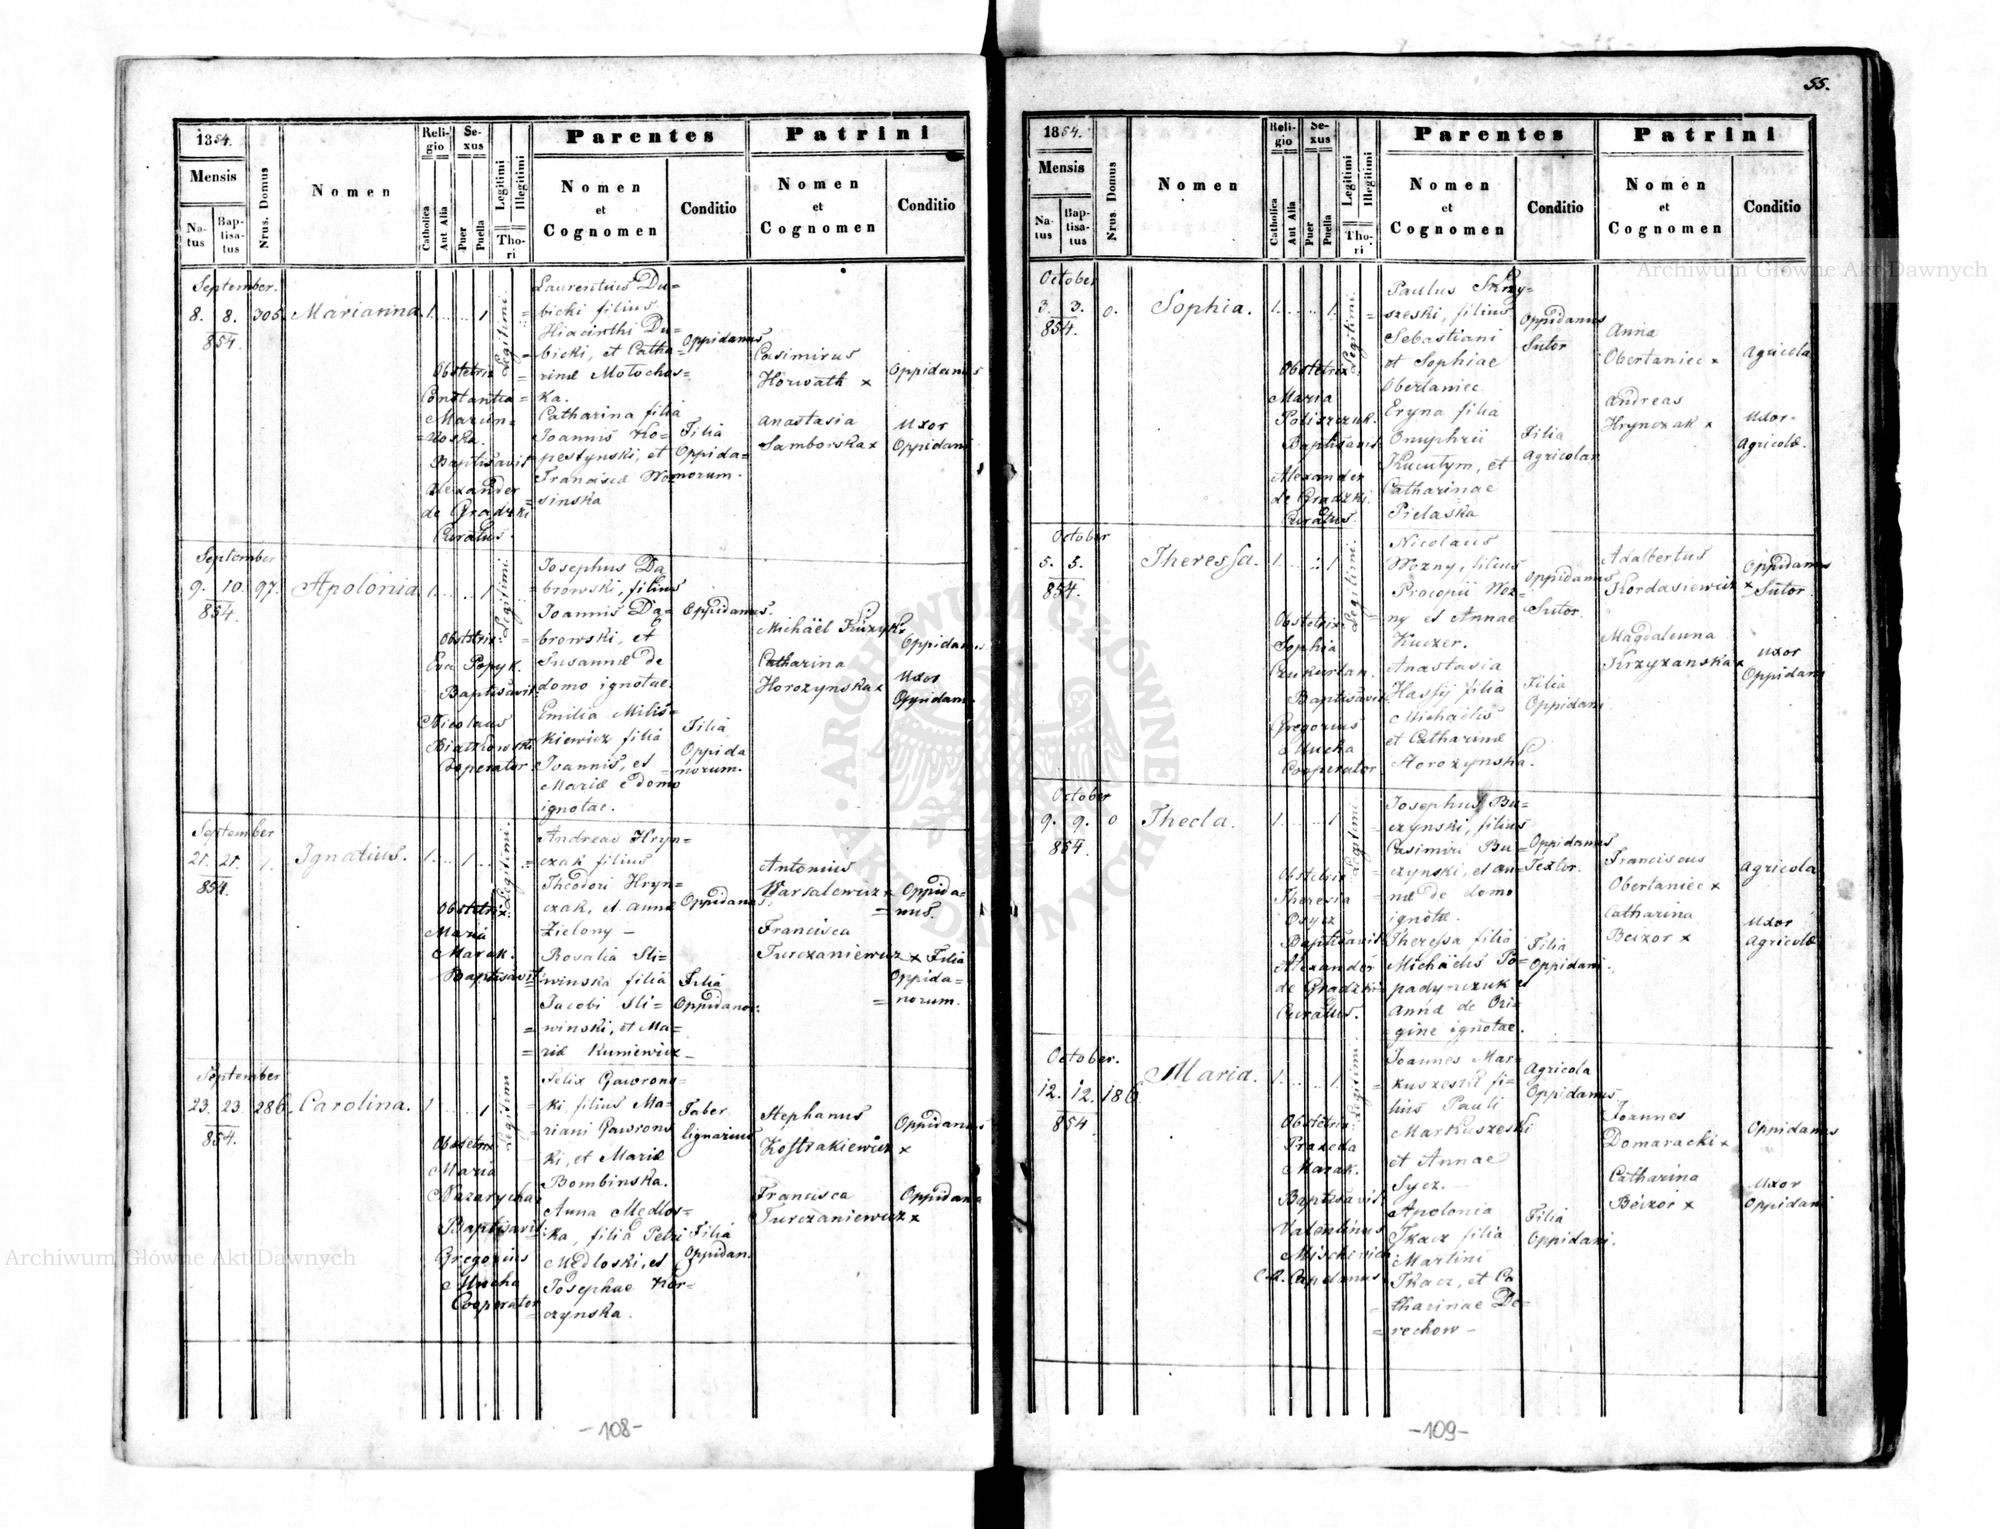 55.
1854.
Mensis
Na-
tus
Bap-
tisa-
tus
Nrus. Domus
Nomen
Reli-
gio
Catholica
Aut Alia
Se-
xus
Puer
Puella
Legitimi
Illegitimi
Tho-
ri
Parentes
Nomen
et
Cognomen
Conditio
Patrini
Nomen
et
Cognomen
Conditio
September.
8. 8. 305. Marianna. 1. 1
854.
Legitimi.
Obstetrix
Constantia
Marcin-
Baptisavit
Alexander
de Gradzki
Curatus.
Laurentius Du=
bicki filius
Hiacinthi Du=
bicki, et Catha=
rinæ Motochos=
ka.
Catharina filia
Joannis Ko=
pestynski, et
Francisca
sinska
Oppidanus
Filia
Oppida=
norum.
Casimirus
Horwath x
Anastasia
Samborska x
Oppidanus
Uxor
Oppidani
September
9. 10. 97. Apolonia 1. 1
854.
Legitimi.
Obstetrix
Eva Popyk.
Baptisavit
Nicolaus
Cooperator.
Josephus Da
browski, filius
Joannis Da=
browski, et
Susannæ de
domo ignotae.
Emilia Milis=
kiewicz filia
Joannis, et
Mariæ e domo
ignotae.
Oppidanus.
Filia
Oppida
norum.
Michaël
Catharina
Horozynska x
Oppidanus
Uxor
Oppidani
September
21. 21. 1. Ignatius. 1. 1
854.
Legitimi.
Obstetrix
Maria
Marak.
Baptisavit
Andreas Hryn=
czak filius
Theodori Hryn=
czak, et Annæ
Zielony -
Rosalia Sli=
winska filia
Jacobi Sli=
winski, et Ma=
riæ Kuniewicz
Oppidanus.
Filia
Oppidanor:
Antonius
Warsalewicz x
Francisca
Turczaniewicz x
Oppida=
nus.
Filia
Oppida=
norum.
September
23. 23. 286. Carolina. 1 1
854.
Legitimi
Obstetrix
Maria
Nazarycha
Baptisavit
Gregorius
Mucha
Cooperator
Felix Gawrons=
ki, filius Ma=
riani Gawrons
ki, et Mariæ
Bombinska.
Anna Medlos=
ka, filia Petri
Medloski, et
Josephae Kor=
czynska.
Faber
lignarius
Filia
Oppidan.
Stephanus
Kostrakiewicz x
Francisca
Turczaniewicz x
Oppidanus
Oppidana
-108-
1854.
Mensis
Na-
tus
Bap-
tisa-
tus
Nrus. Domus
Nomen
Reli-
gio
Catholica
Aut Alia
Se-
xus
Puer
Puella
Legitimi
Illegitimi
Tho-
ri
Parentes
Nomen
et
Cognomen
Conditio
Patrini
Nomen
et
Cognomen
Conditio
October
3. 3. 0. Sophia. 1. 1.
854.
Legitimi.
Obstetrix
Maria
Poliszczuk.
Baptisavit
Alexander
de Gradzki
Curatus.
Paulus Skrzy=
szeski, filius
Sebastiani
et Sophiae
Obertaniec.
Eryna filia
Onuphrii
Kucutym, et
Catharinae
Pielaska
Oppidanus
Sutor
Filia
Agricolar
Anna
Obertaniec x
Andreas
Hrynczak x
Agricola
Uxor
Agricolæ.
October
5. 5. Theressa. 1. 1
854.
Legitimi.
Obstetrix
Sophia
Baptisavit
Gregorius
Mucha
Cooperator
Nicolaus
Wozny, filius
Procopii Woz=
ny et Annae
Kuczer.
Anastasia
Hassij filia
Michaëlis
et Catharinæ
Horozynska.
Oppidanus
Sutor.
Filia
Oppidani
Adalbertus
Kordasiewicz x
Magdalenna
Krzyzanska x
Oppidanus
Sutor
Uxor
Oppidani
October
9. 9. 0 Thecla. 1. 1
854.
Legitimi.
Obstetrix
Theresia
Baptisavit
Alexander
de Gradzki
Curatus.
Josephus Bu=
czynski, filius
Casimiri Bu=
czynski, et An=
næ de domo
ignotæ.
Theressa filia
Michaëlis Po=
padynczuk et
Annæ de Ori=
gine ignotae.
Oppidanus
Textor.
Filia
Oppidani.
Franciscus
Obertaniec x
Catharina
Beizor x
Agricola
Uxor
Agricolæ
October.
12. 12. 186. Maria. 1. 1.
854.
Legitimi.
Obstetrix
Praxeda
Marak.
Baptisavit
Valentinus
Mischevich
Capelanus
Joannes Mar=
kuszeski fi=
lius Pauli
Markuszeski
et Annae
Sycz.
Apolonia
Tkacz filia
Martini
Tkacz, et Ca
tharinae De=
rechow -
Agricola
Oppidanus.
Filia
Oppidani.
Joannes
Domaracki x
Catharina
Beizor x
Oppidanus
Uxor
Oppidani
-109-
Archiwum Główne Akt Dawnych
Archiwum Główne Akt Dawnych
ARCHIWUM GŁÓWNE AKT DAWNYCH